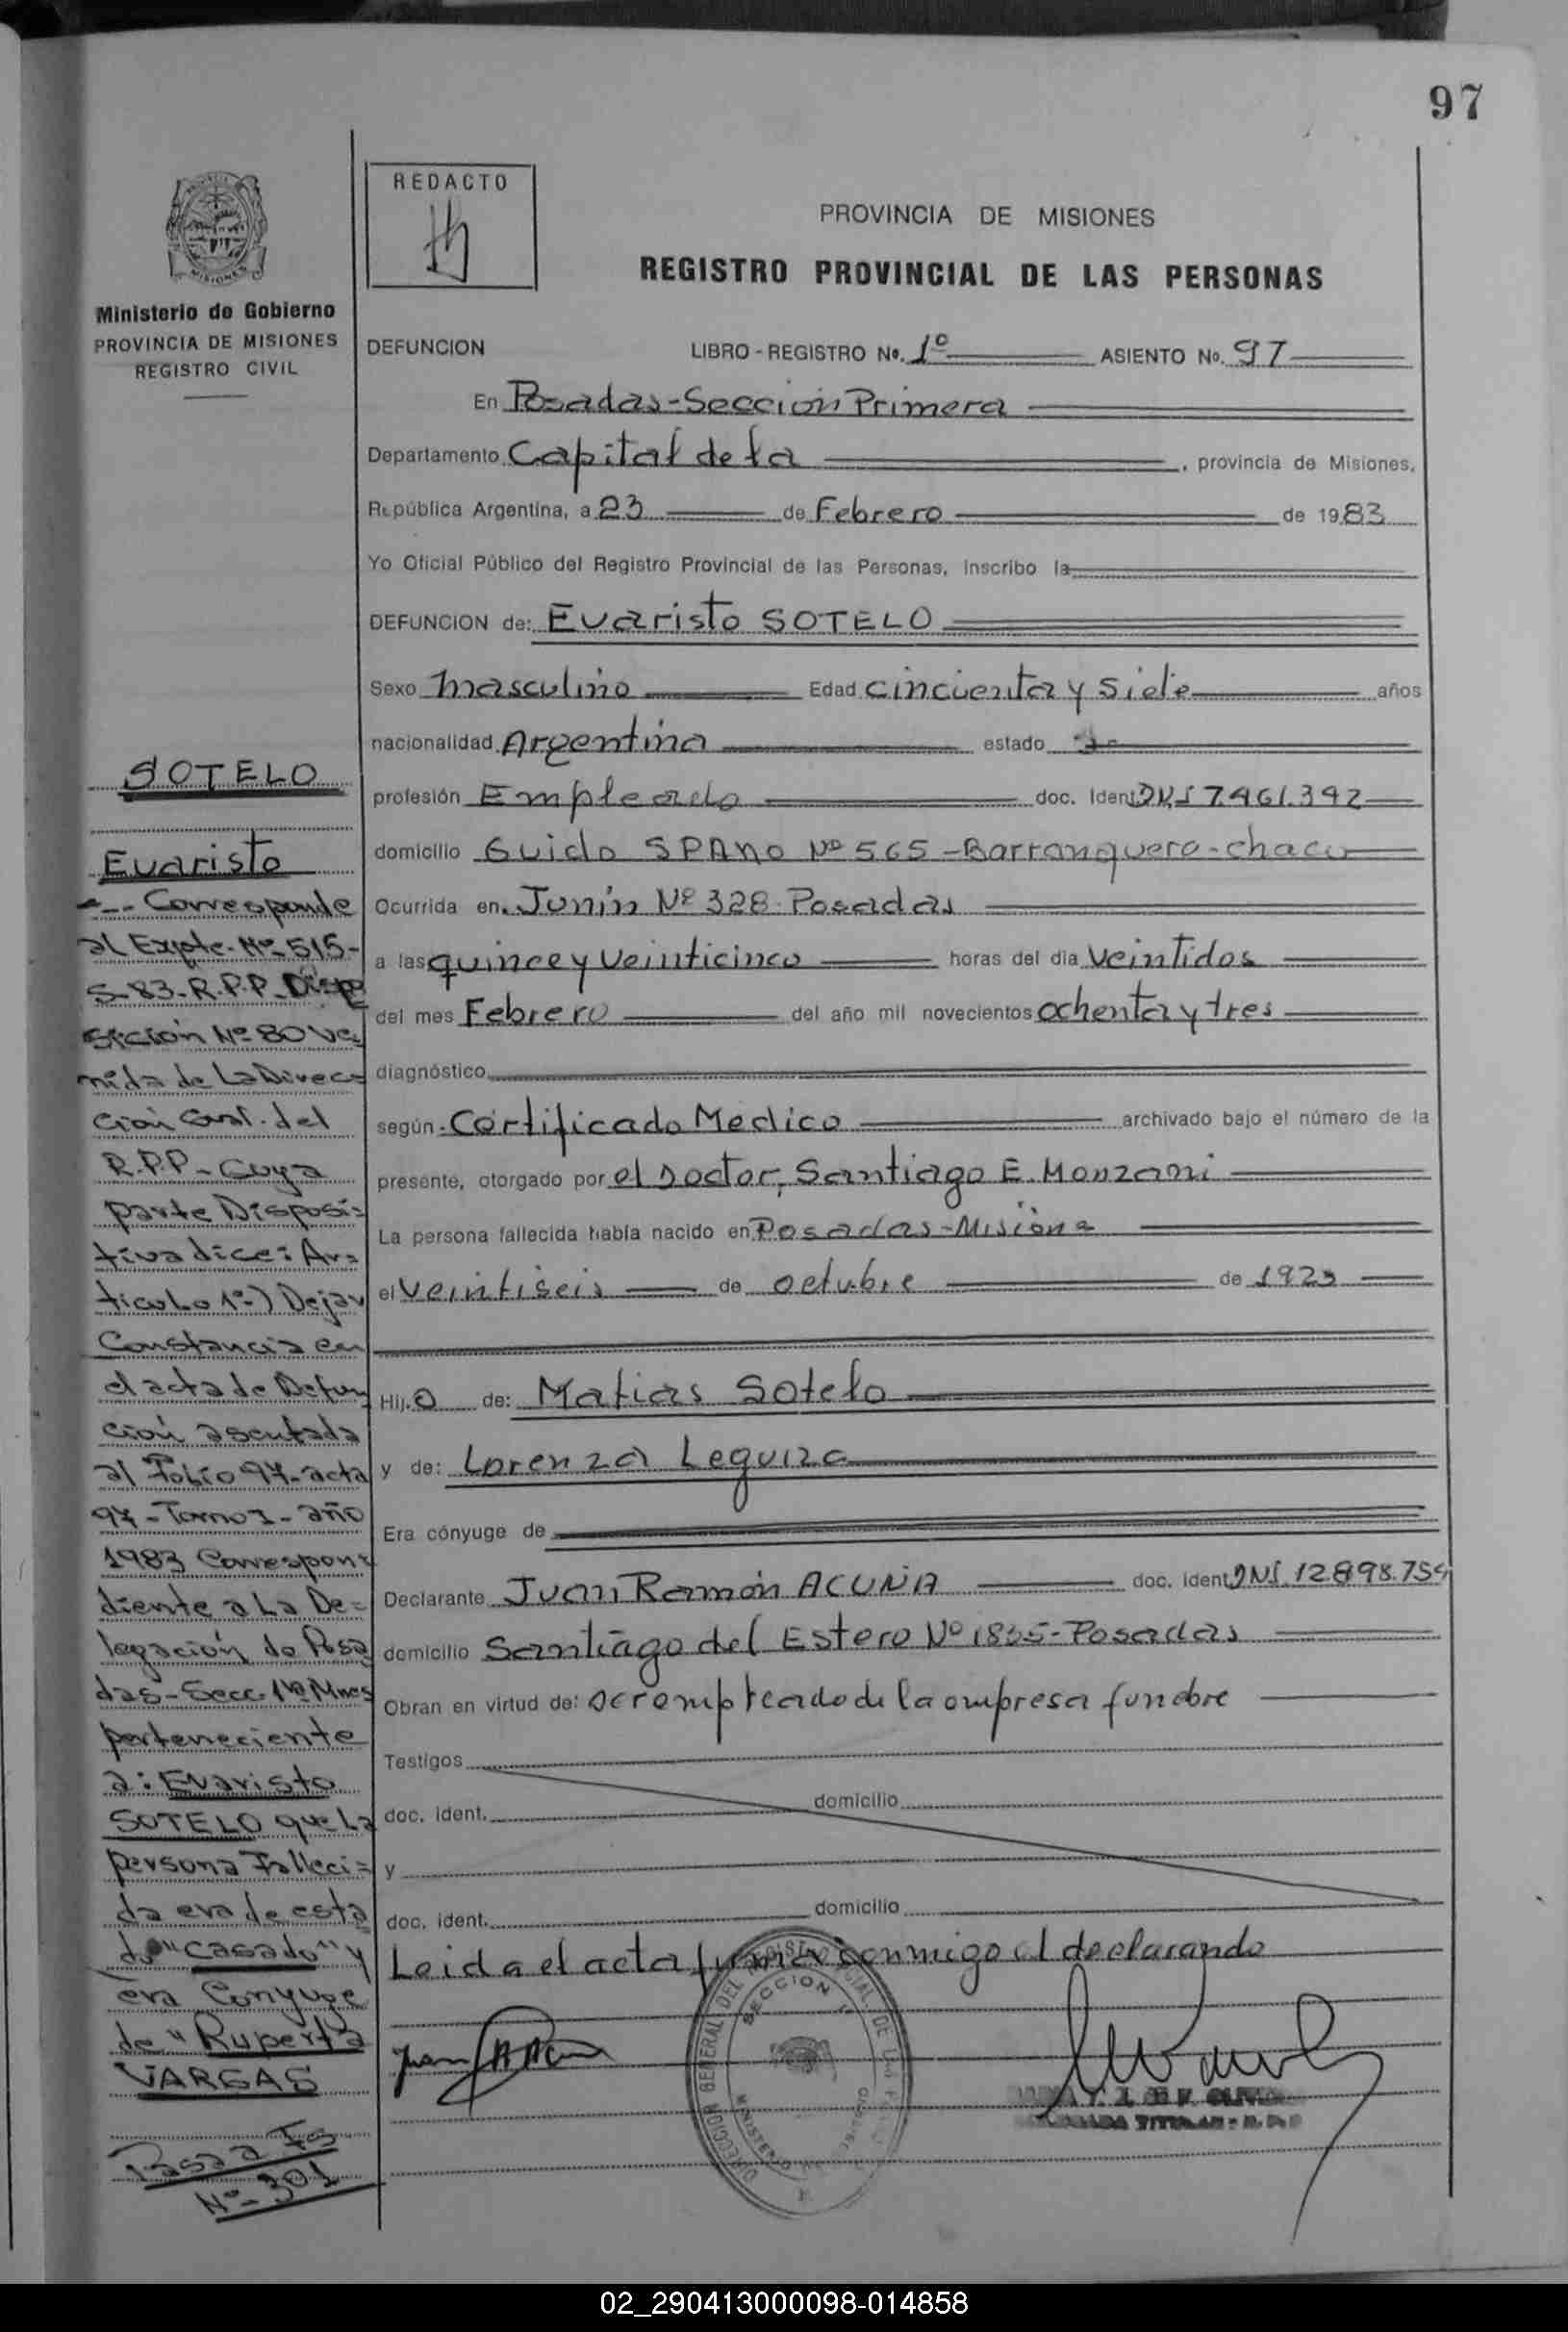 97
REDACTO
PROVINCIA DE MISIONES
REGISTRO PROVINCIAL DE LAS PERSONAS
Ministerio de Gobierno
PROVINCIA DE MISIONES
REGISTRO CIVIL
DEFUNCION LIBRO - REGISTRO No. 1º ASIENTO No. 97
En Posadas-Sección Primera
Departamento Capital de la , provincia de Misiones,
República Argentina, a 23 de Febrero de 1983
Yo Oficial Público del Registro Provincial de las Personas, inscribo la
DEFUNCION de: Evaristo SOTELO
Sexo masculino Edad cincuenta y siete años
nacionalidad Argentina estado
profesión Empleado doc. Ident DNI 7.461.342
domicilio Guido SPANO Nº 565 - Barranquera - Chaco
Ocurrida en Junín Nº 328 Posadas
a las quince y veinticinco horas del día veintidos
del mes Febrero del año mil novecientos ochenta y tres
diagnóstico
según Certificado Medico archivado bajo el número de la
presente, otorgado por el Doctor, Santiago E. Monzani
La persona fallecida había nacido en Posadas-Misiones
el veintiseis de octubre de 1925
Hij.o de: Matias Sotelo
y de: Lorenza Leguiza
Era cónyuge de
Declarante Juan Ramón ACUÑA doc. ident DNI. 12.898.754
domicilio Santiago del Estero Nº 1835-Posadas
Obran en virtud de: ser empleado de la empresa funebre
Testigos
doc. ident. domicilio
y
doc. ident. domicilio
Leida el acta firma conmigo el declarando
SOTELO
Evaristo
Corresponde
al Expte-Nº-515-
S-83-R.P.P-Dispo
sición Nº-80 ve
nida de La Direc
ción Gral. del
R.P.P-Cuya
parte Disposi=
tiva dice: Ar=
ticulo 1º-) Dejar
Constancia en
el acta de Defun
ción asentada
al Folio 97-acta
97-Tomo I-año
1983 Correspon=
diente a La De=
legación de Posa
das-Secc. 1ª Mnes
perteneciente
a: Evaristo
SOTELO que La
persona Falleci=
da era de esta
do "casado" y
era Conyuge
de "Ruperta
VARGAS
Pasa a Fo
Nº-301
DIRECCION GENERAL DEL REGISTRO
SECCION
MINISTERIO
02_290413000098-014858